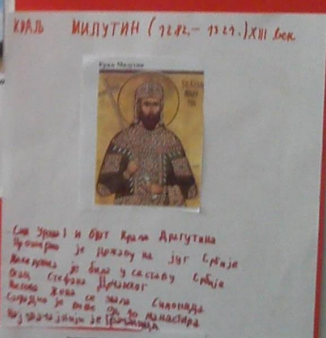 КРАЉ МИЛУТИН (1282.- 1321.) XIII век
Краљ Милутин
Син Уроша I и брат Краља Драгутина
Проширио је државу на југ Србије
је била у саставу Србије
Отац Стефана Дечанског
жена се звала Симонида
Саградио је више од 40 манастира
Најзначајнији је Грачаница